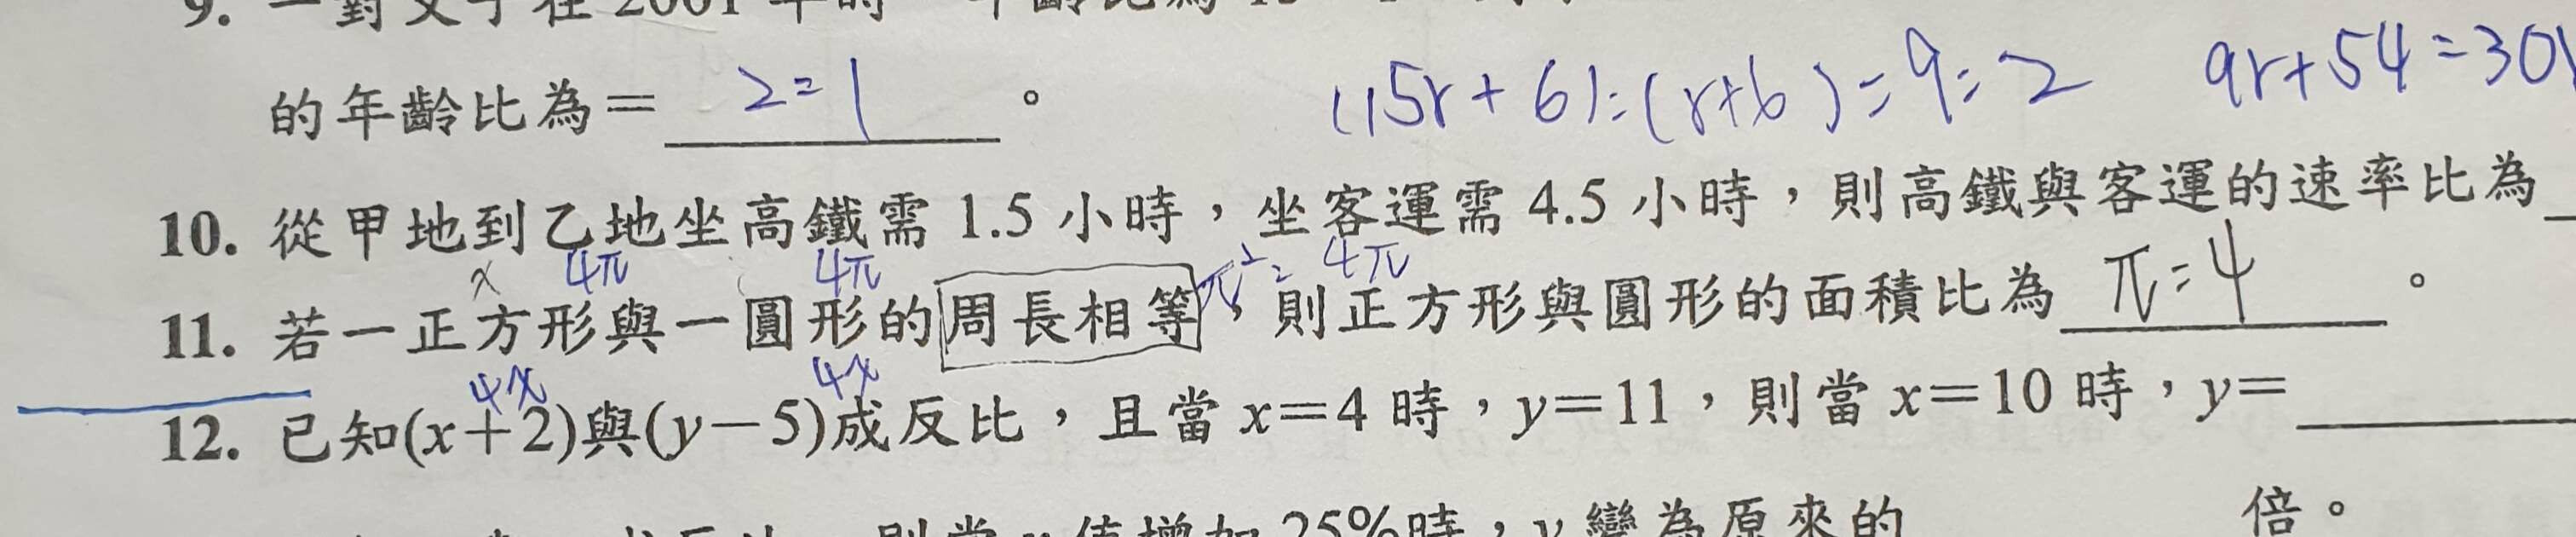 9. 一對父子在 2001 年時
的年齡比為＝ 2:1 。 (15r+6):(r+6)=9:2 9r+54=30
10. 從甲地到乙地坐高鐵需 1.5 小時，坐客運需 4.5 小時，則高鐵與客運的速率比為
x 4π 4π π²: 4π
11. 若一正方形與一圓形的周長相等，則正方形與圓形的面積比為 π:4 。
4x 4x
12. 已知(x＋2)與(y－5)成反比，且當 x＝4 時，y＝11，則當 x＝10 時，y＝
25%時，y 變為原來的 倍。